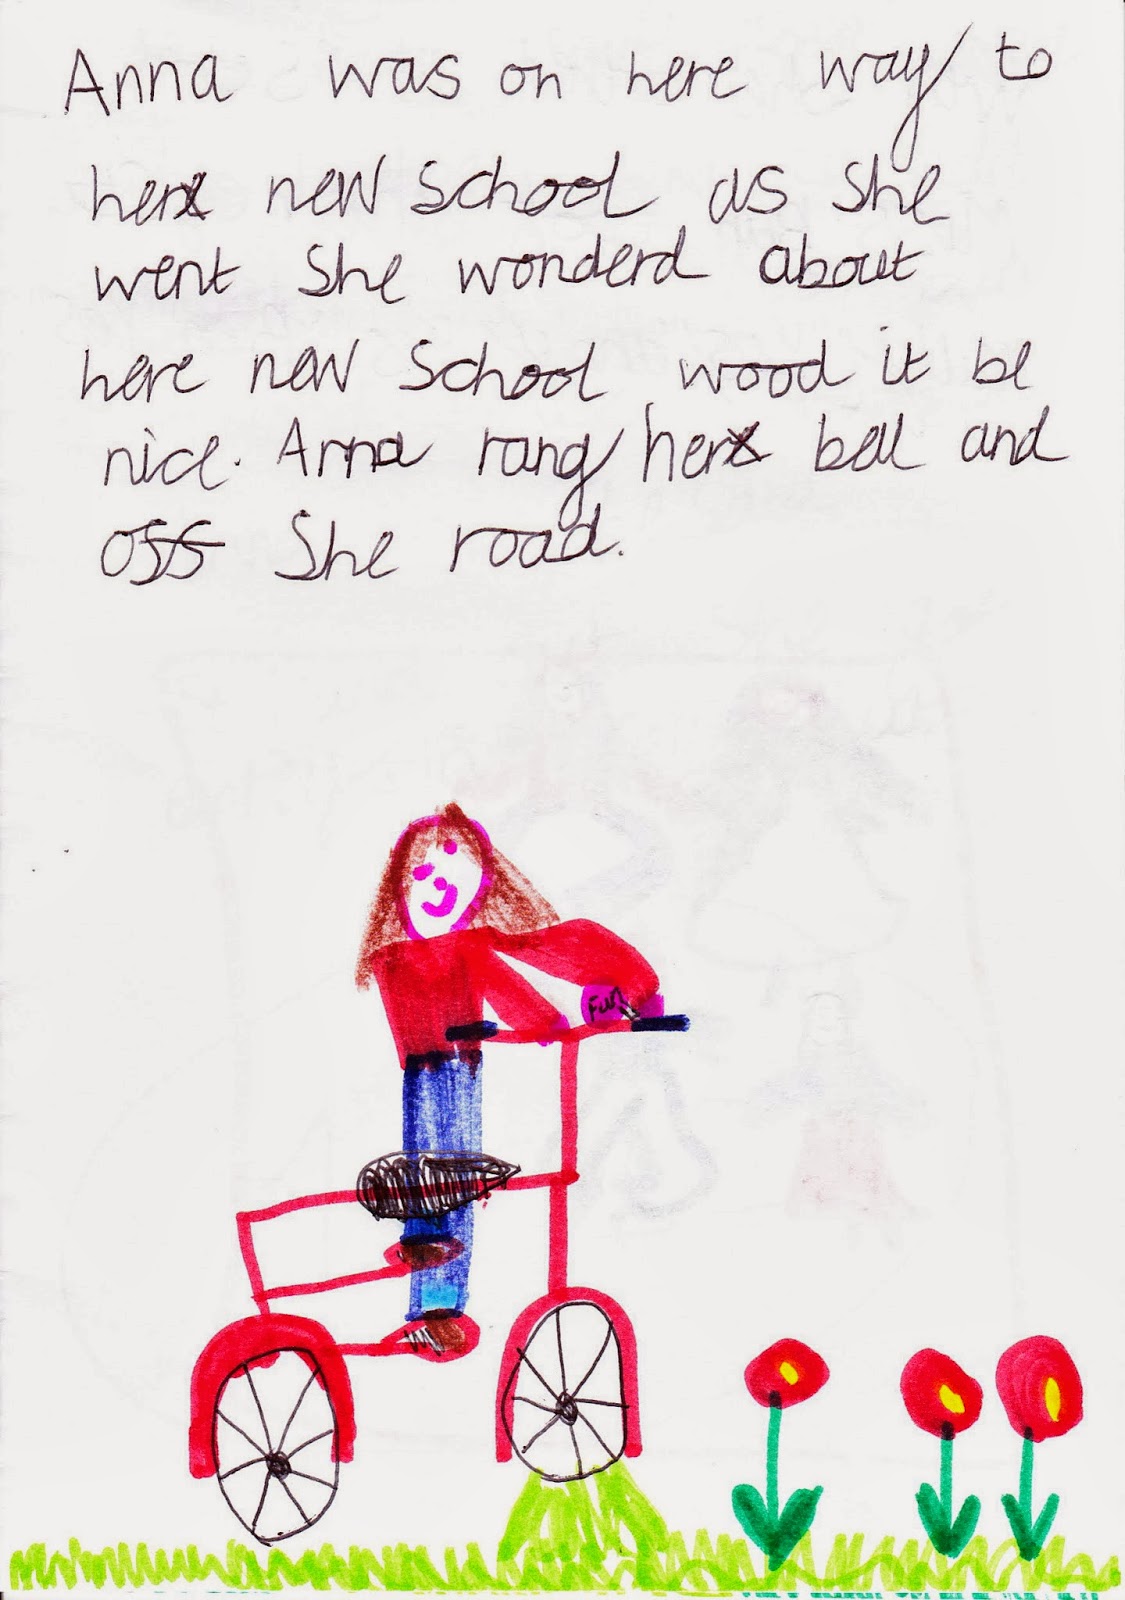 Anna was on here way to
her new School as She
went She wonderd about
here new School wood it be
nice. Anna rang her bell and
off She road.
Fun